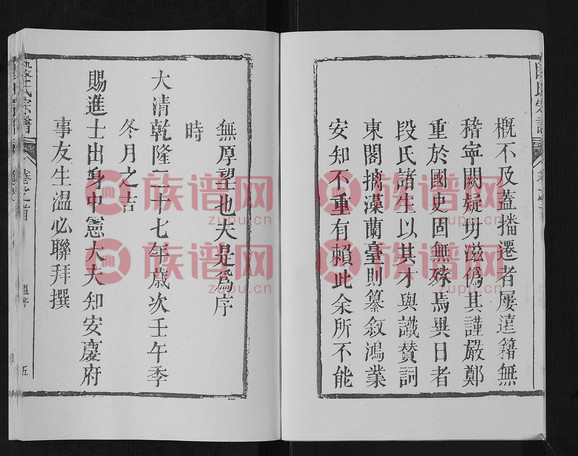 概不及蓋播遷者屢達籍無
稽寧闕疑毋滋偽其謹嚴鄭
重於國史固無殊焉異日者
段氏諸生以其才與識贊詞
東閣摛藻蘭臺則纂敘鴻業
安知不重有賴此余所不能
無厚望也夫是爲序
時
大清乾隆二十七年歲次壬午季
冬月之吉
賜進士出身中憲大夫知安慶府
事友生溫必聯拜撰
段氏宗譜
卷之首
溫序
五
族谱网
zupu.cn